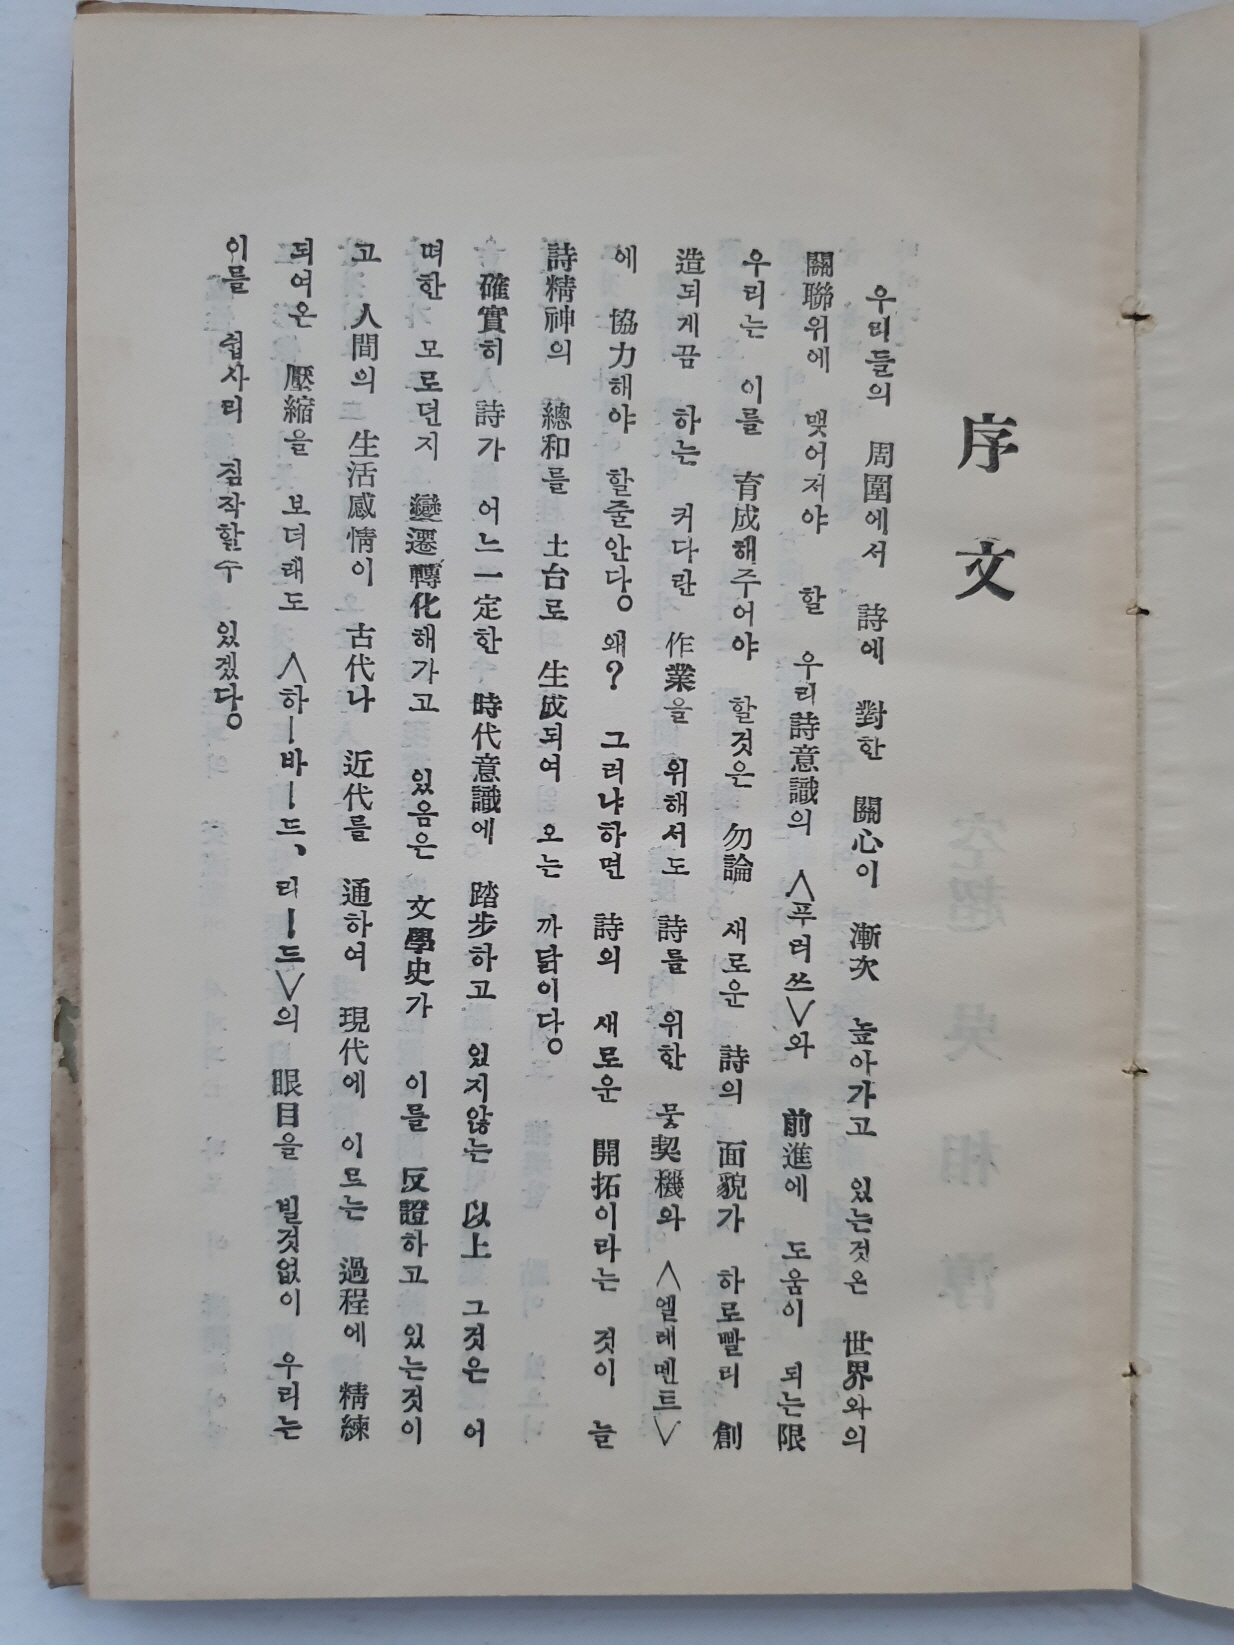 序文
우리들의 周圍에서 詩에 對한 關心이 漸次 높아가고 있는것은 世界와의
關聯위에 맺어저야 할 우리詩意識의 〈푸러쓰〉와 前進에 도움이 되는限
우리는 이를 育成해주어야 할것은 勿論 새로운 詩의 面貌가 하로빨리 創
造되게끔 하는 커다란 作業을 위해서도 詩를 위한 뭇契機와 〈엘레멘트〉
에 協力해야 할줄안다。왜? 그러냐하면 詩의 새로운 開拓이라는 것이 늘
詩精神의 總和를 土台로 生成되여 오는 까닭이다。
確實히 詩가 어느一定한 時代意識에 踏步하고 있지않는 以上 그것은 어
떠한 모로던지 變遷轉化해가고 있음은 文學史가 이를 反證하고 있는것이
고 人間의 生活感情이 古代나 近代를 通하여 現代에 이르는 過程에 精練
되여온 壓縮을 보더래도 〈하ー바ー드、리ー드〉의 眼目을 빌것없이 우리는
이를 쉽사리 짐작할수 있겠다。